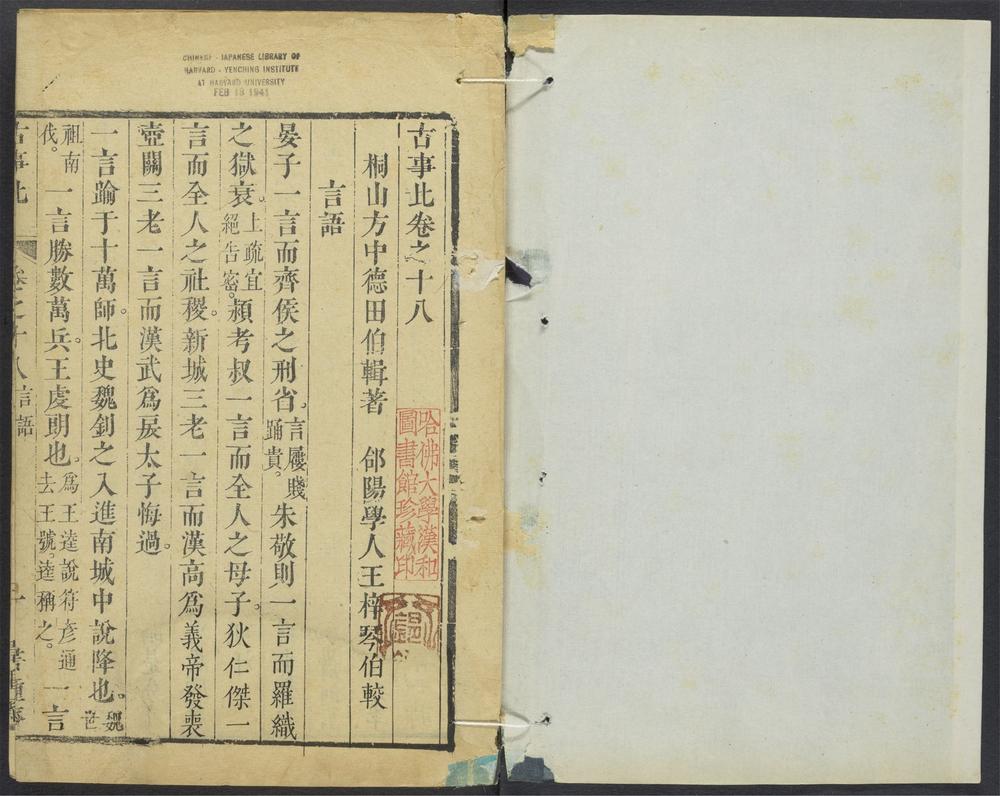 CHINESE - JAPANESE LIBRARY OF
HARVARD - YENCHING INSTITUTE
AT HARVARD UNIVERSITY
FEB 18 1941
古事比卷之十八
桐山方中德田伯輯著　郃陽學人王梓琴伯較
言語
晏子一言而齊侯之刑省。言屨賤踊貴。朱敬則一言而羅織
之獄衰。上疏宜絕告密。潁考叔一言而全人之母子。狄仁傑一
言而全人之社稷。新城三老一言而漢高爲義帝發喪
壺關三老一言而漢武爲戾太子悔過。
一言踰于十萬師。北史魏釗之入進南城中說降也。魏世
祖南伐。一言勝數萬兵。王虔朗也。爲王逵說符彥通去王號。逵稱之。一言
古事比
卷之十八言語
一
哈佛大學漢和
圖書館珍藏印